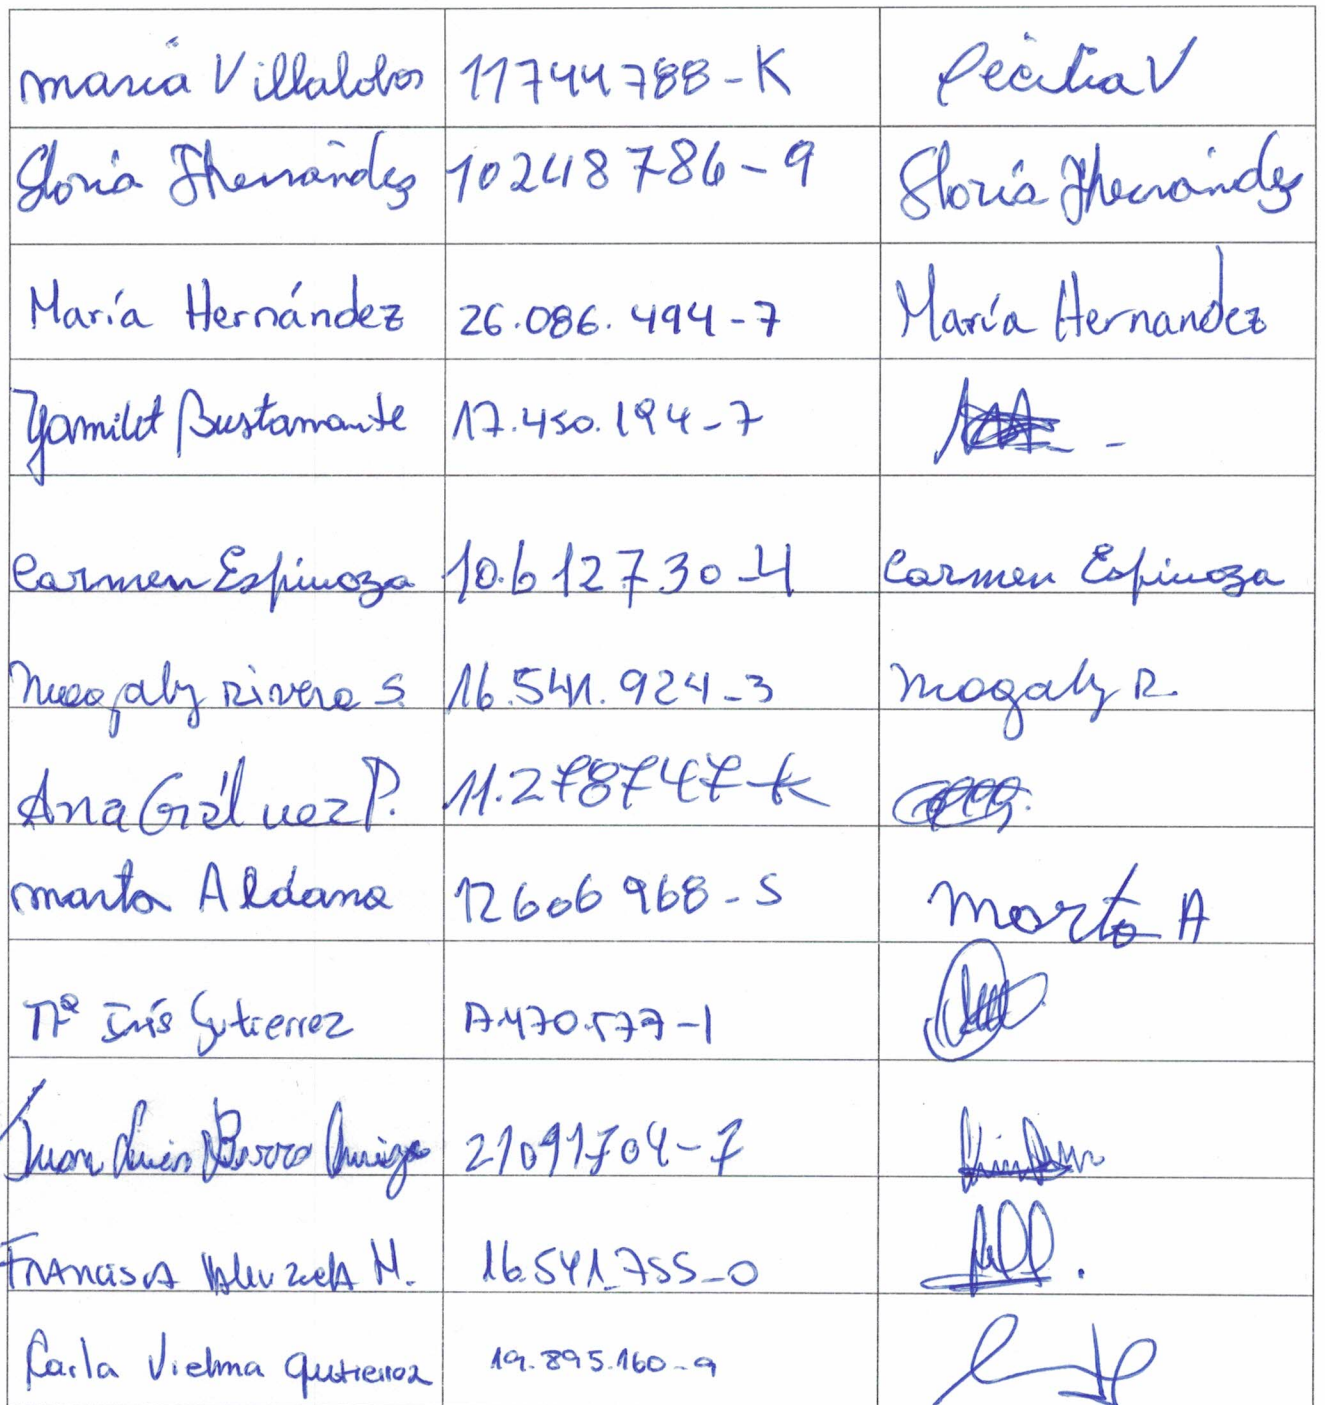 maria Villalobos 11744788-K Cecilia V
Gloria Jhernández 10248786-9 Gloria Jhernández
María Hernández 26.086.494-7 María Hernandez
Yamilet Bustamante 17.450.194-7
Carmen Espinoza 10.612730-4 Carmen Espinoza
Magaly Rivera S. 16.541.924-3 Magaly R.
Ana Gálvez P. 11.278747-K
marta Aldana 12606968-5 Marta A
Mª Inés Gutierrez
Juan Luis 21091704-7
Francisca Valenzuela M. 16.541.755-0
Carla Vielma Gutierrez 19.895.160-9